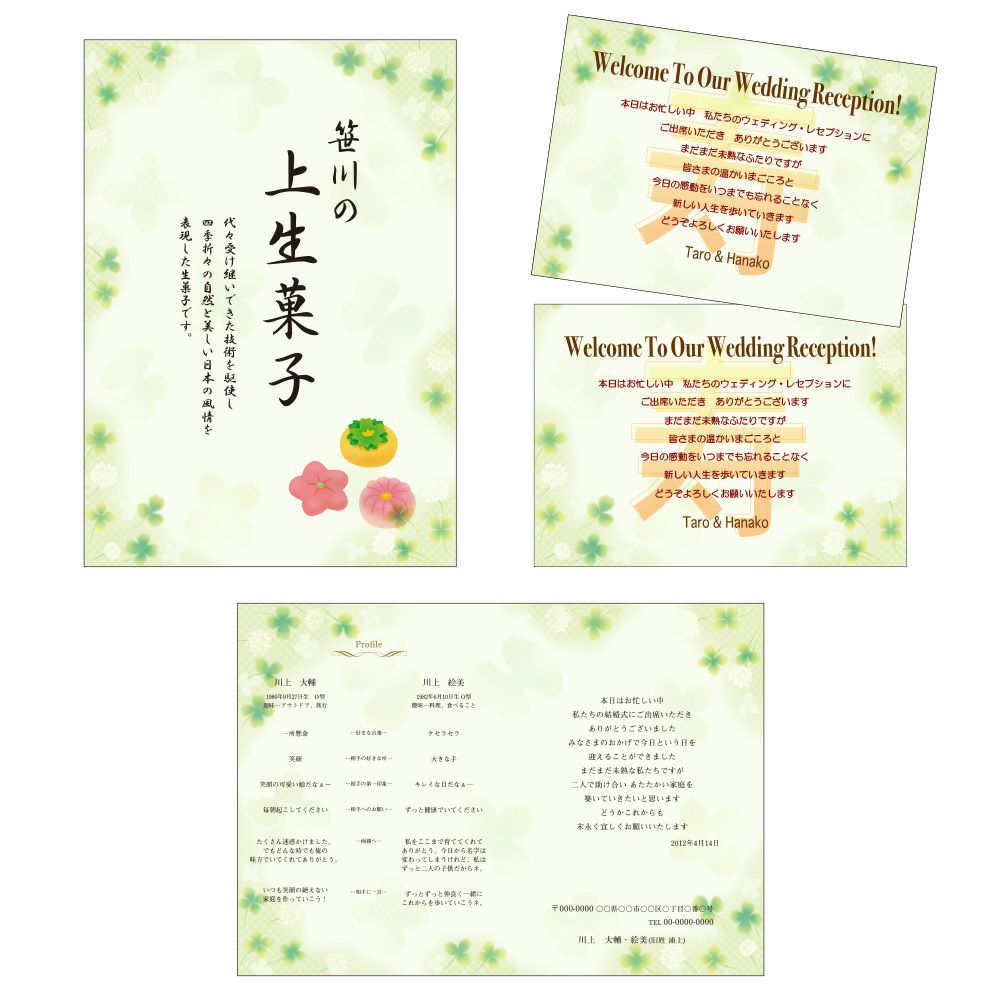 笹川の
上生菓子
代々受け継いできた技術を駆使し
四季折々の自然と美しい日本の風情を
表現した生菓子です。
Welcome To Our Wedding Reception!
本日はお忙しい中　私たちのウェディング・レセプションに
ご出席いただき　ありがとうございます
まだまだ未熟なふたりですが
皆さまの温かいまごころと
今日の感動をいつまでも忘れることなく
新しい人生を歩いていきます
どうぞよろしくお願いいたします
Taro & Hanako
寿
Welcome To Our Wedding Reception!
本日はお忙しい中　私たちのウェディング・レセプションに
ご出席いただき　ありがとうございます
まだまだ未熟なふたりですが
皆さまの温かいまごころと
今日の感動をいつまでも忘れることなく
新しい人生を歩いていきます
どうぞよろしくお願いいたします
Taro & Hanako
寿
Profile
川上　大輔　川上　絵美
1980年9月27日生　O型　1982年6月10日生 O型
趣味…アウトドア、旅行　趣味…料理、食べること
一所懸命　…好きな言葉…　ケセラセラ
笑顔　…相手の好きな所…　大きな手
笑顔の可愛い娘だなぁ…　…相手の第一印象…　キレイな目だなぁ…
毎朝起こしてください　…相手へのお願い…　ずっと健康でいてください
たくさん迷惑かけました。　…両親へ…　私をここまで育ててくれて
でもどんな時でも俺の　ありがとう。今日から名字は
味方でいてくれてありがとう。　変わってしまうけれど、私は
ずっと二人の子供だからネ。
いつも笑顔の絶えない　…相手に一言…　ずっとずっと仲良く一緒に
家庭を作っていこう！　これからを歩いていこうネ。
本日はお忙しい中
私たちの結婚式にご出席いただき
ありがとうございました
みなさまのおかげで今日という日を
迎えることができました
まだまだ未熟な私たちですが
二人で助け合い あたたかい家庭を
築いていきたいと思います
どうかこれからも
末永く宜しくお願いいたします
2012年4月14日
〒000-0000 〇〇県〇〇市〇〇区〇丁目〇番〇号
TEL 00-0000-0000
川上　大輔・絵美(旧姓 浦上)